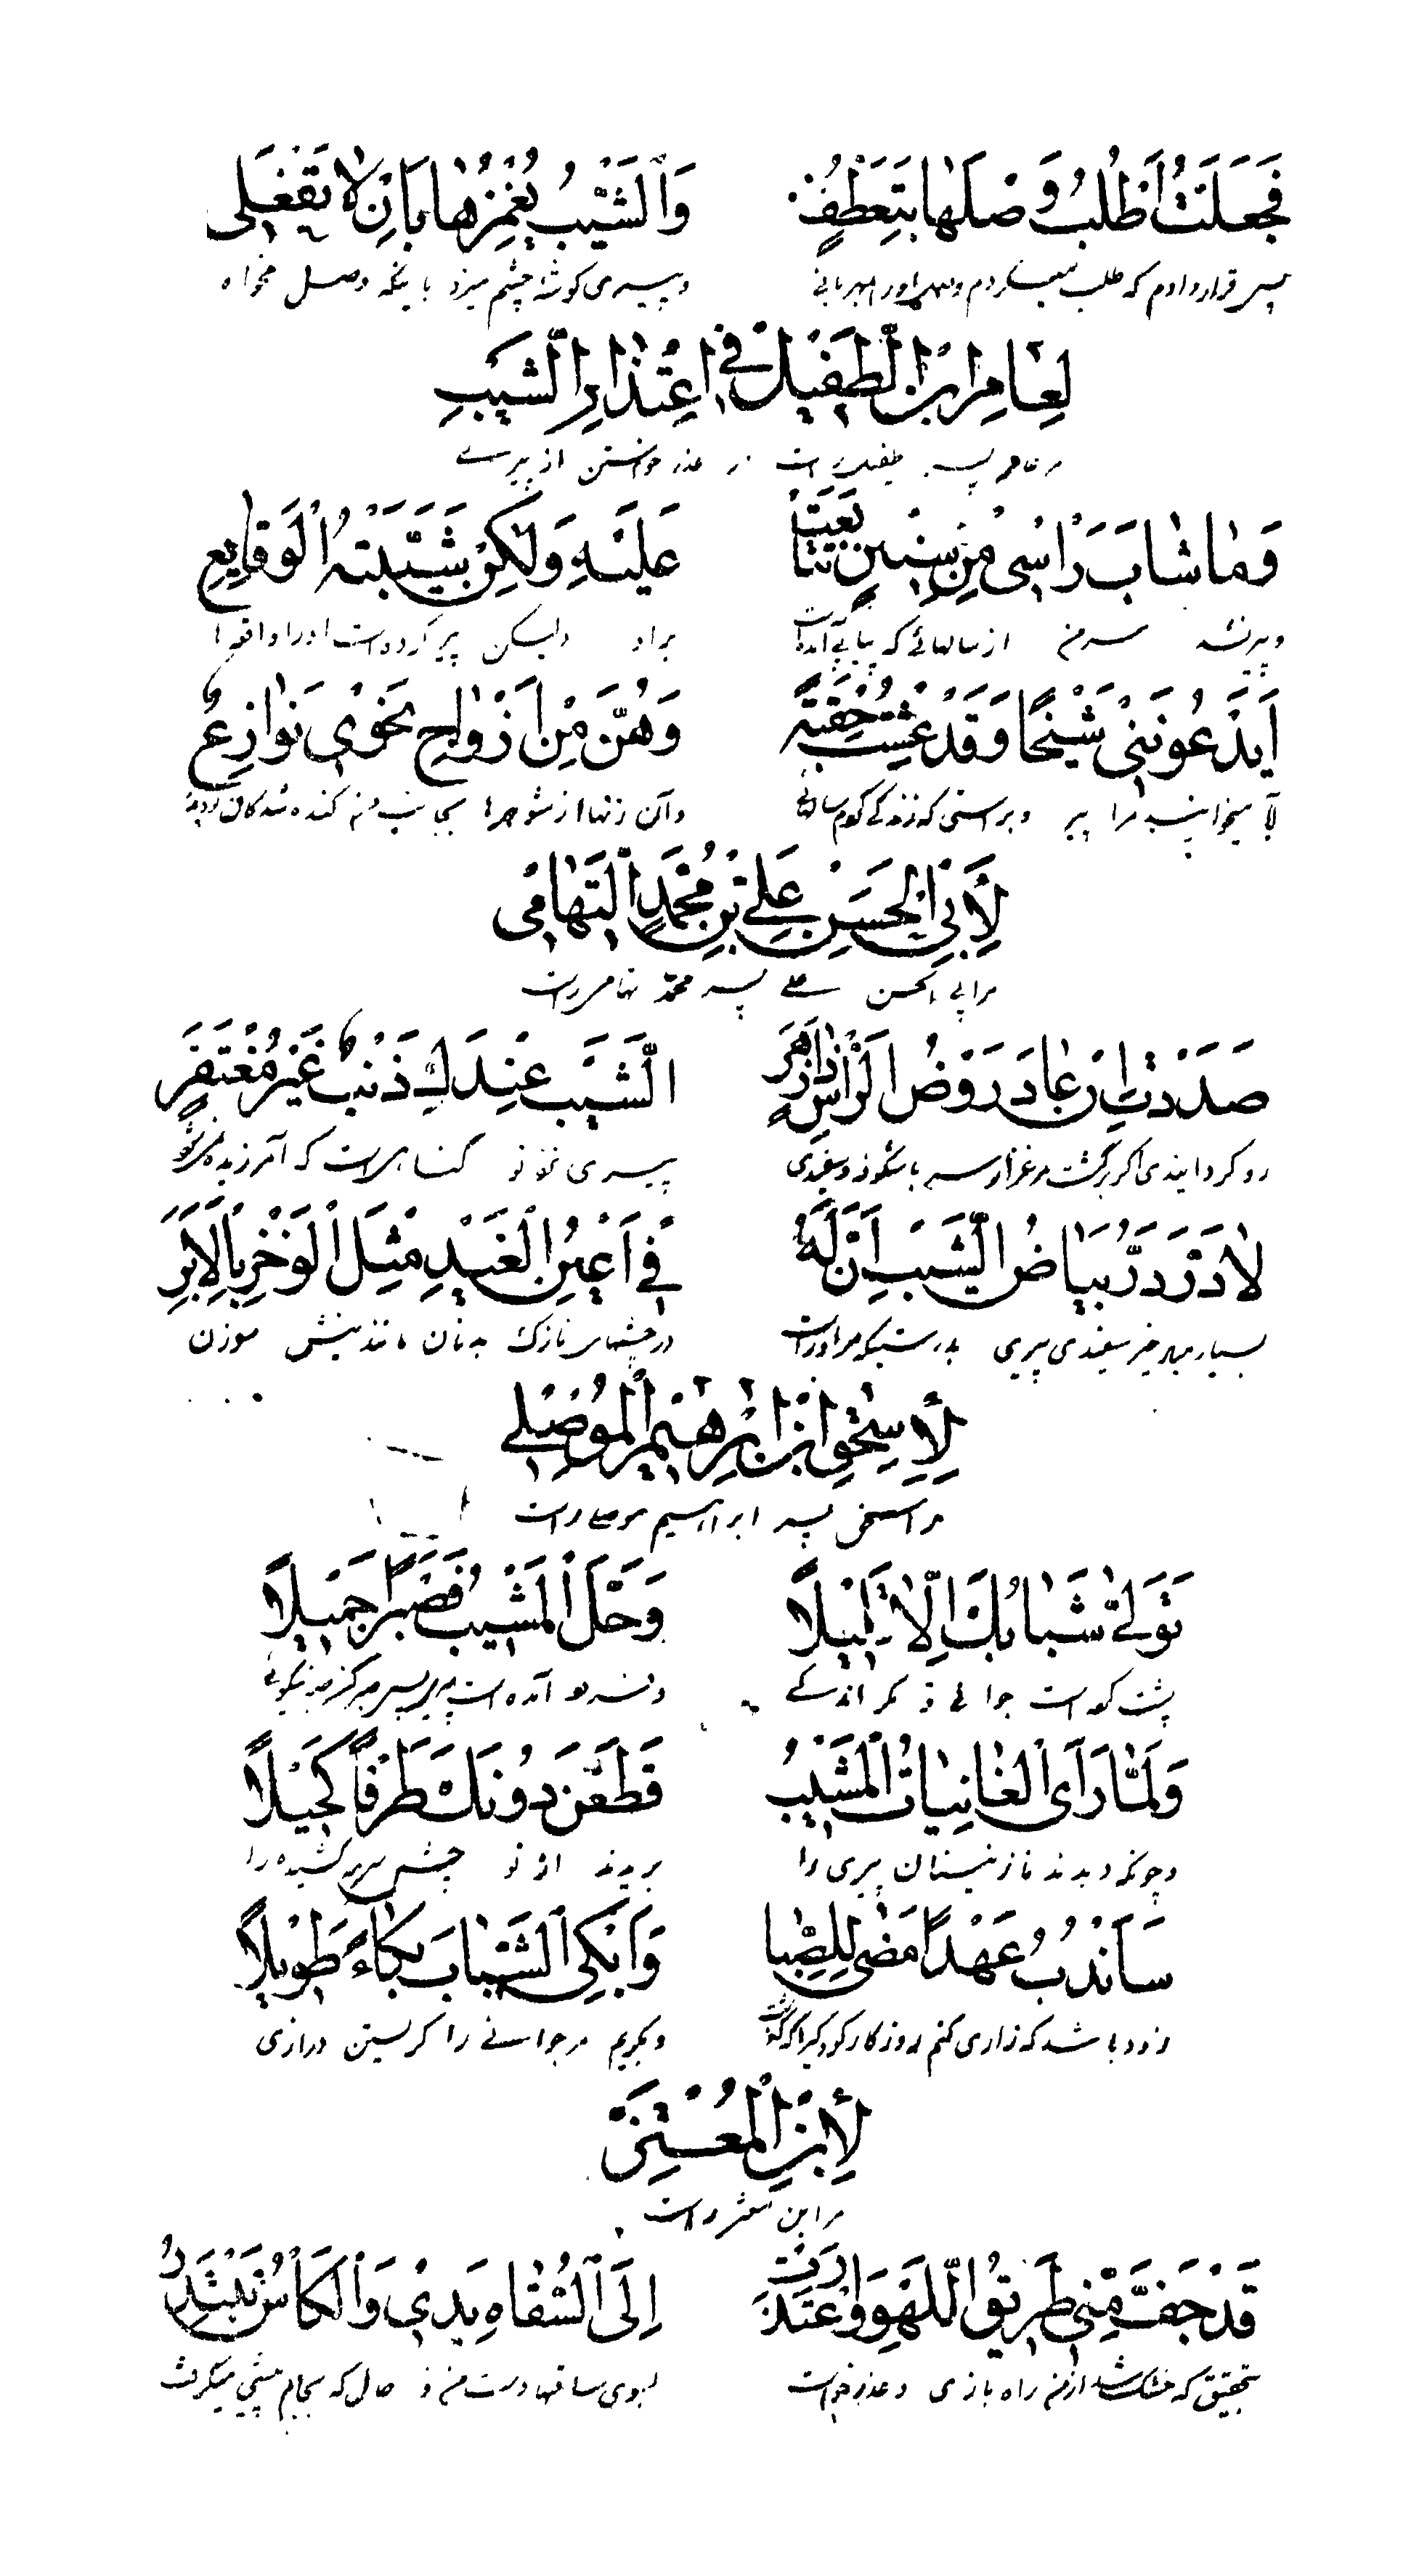 فَجَعَلْتُ اَطْلُبُ وَصْلَهَا بِتَعَطُّفٍ وَالشَّيْبُ يَغْمِزُهَا بِاَنْ لَا تَفْعَلِى
پس قرار دادم که طلب میکردم وصل او را بمهربانی و پیری گوشه چشم میزد باینکه وصل مخواه
لِعَامِرِ ابْنِ الطُّفَيْلِ فِى اعْتِذَارِ الشَّيْبِ
مر عامر پسر طفیل راست در عذر خواستن از پیرے
وَمَا شَابَ رَاْسِى مِنْ سِنِينٍ تَتَابَعَتْ عَلَيْهِ وَلٰكِنْ شَيَّبَتْهُ الْوَقَايِعُ
و پیر نشد سر من از سالهائے که پیاپے آمده است براو ولیکن پیر کرده است او را واقعها
اَيَدْعُونَنِى شَيْخًا وَقَدْ عِشْتُ حِقْبَةً وَهُنَّ مِنْ اَزْوَاجٍ نَحْوِى نَوَازِعُ
آیا میخوانید مرا پیر و براستی که زندگی کردم سالها و آن زنها از شوهرها بجانب من کنده شدگان
لِاَبِى الْحَسَنِ عَلِىِّ بْنِ مُحَمَّدٍ التِّهَامِى
مرابی الحسن علے پسر محمد تهامی راست
صَدَدْتِ اِنْ عَادَ رَوْضُ الرَّاْسِ ذَا زَهَرٍ الشَّيْبُ عِنْدَكِ ذَنْبٌ غَيْرُ مُغْتَفَرِ
رو گردانیدی اگر برگشت مرغزار سر با شکوفه و سفیدی پیری نزد تو گناهی است که آمرزیده
لَا دَرَّ دَرُّ بَيَاضِ الشَّيْبِ اِنَّ لَهُ فِى اَعْيُنِ الْغِيدِ مِثْلَ الْوَخْزِ بِالْاِبَرِ
بسیار مباد خیر سفیدی پیری بدرستیکه مراوراست در چشمهای نازک بدنان مانند نیش سوزن
لِاِسْحٰقِ ابْنِ اِبْرٰهِيمَ الْمُوصِلِى
مر اسحق پسر ابراهیم موصلے راست
تَوَلَّى شَبَابُكَ اِلَّا قَلِيلًا وَحَلَّ الْمَشِيبُ فَصَبْرًا جَمِيلًا
پشت کرده است جوانی تو مگر اندکے و فرود آمده است پیری پس صبر کن صبر نیکوئے
وَلَمَّا رَاَى الْغَانِيَاتُ الْمَشِيبَ قَطَعْنَ دُونَكَ طَرْفًا كَحِيلًا
و چونکه دیدند نازنینان پیری را بریدند از تو چشم سرمه کشیده را
سَاَنْدُبُ عَهْدًا مَضَى لِلصِّبَا وَاَبْكِى الشَّبَابَ بُكَاءً طَوِيلًا
زود باشد که زاری کنم روزگار کودکی را که گذشت و بگریم مر جوانے را گریستن درازی
لِابْنِ الْمُعْتَزِّ
مر ابن معتز راست
قَدْ جَفَّ مِنِّى طَرِيقُ اللَّهْوِ وَاعْتَذَرَتْ اِلَى السُّقَاةِ يَدِى وَالْكَاْسُ تَبْتَدِرُ
بتحقیق که خشک شد از من راه بازی و عذر خواست بسوی ساقیها دست من و حال که جام پیشی میگرفت